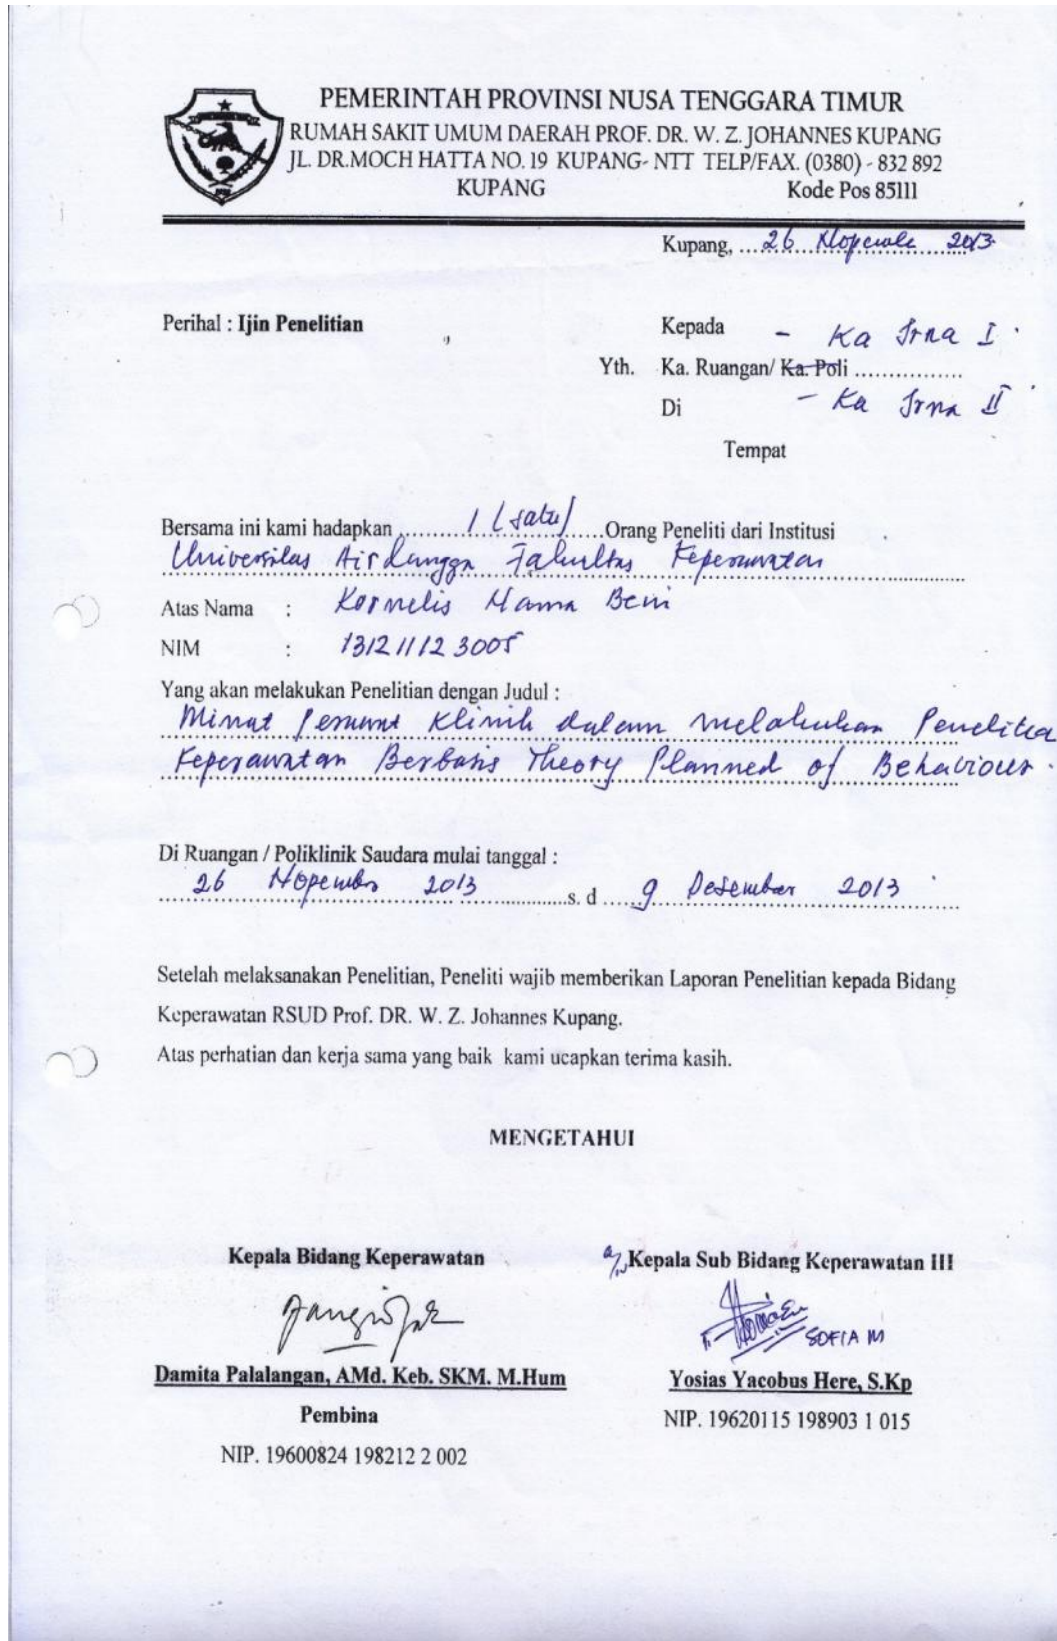 PEMERINTAH PROVINSI NUSA TENGGARA TIMUR
RUMAH SAKIT UMUM DAERAH PROF. DR. W. Z. JOHANNES KUPANG
JL. DR.MOCH HATTA NO. 19 KUPANG- NTT TELP/FAX. (0380) - 832 892
KUPANG Kode Pos 85111
Kupang, ... 26 2013
Perihal : Ijin Penelitian
Kepada - Ka Irna I
Yth. Ka. Ruangan/ Ka. Poli ................
Di - Ka Irna II
Tempat
Bersama ini kami hadapkan ........... 1 (satu) .....Orang Peneliti dari Institusi
Universitas Airlangga Fakultas Keperawatan
Atas Nama : Kornelis Nama Beni
NIM : 131211123005
Yang akan melakukan Penelitian dengan Judul :
Minat Perawat Klinik dalam melakukan Penelitia
Keperawatan Berbasis Theory Planned of Behaviour.
Di Ruangan / Poliklinik Saudara mulai tanggal :
26 Nopember 2013 ...............s. d ...... 9 Desember 2013
Setelah melaksanakan Penelitian, Peneliti wajib memberikan Laporan Penelitian kepada Bidang
Keperawatan RSUD Prof. DR. W. Z. Johannes Kupang.
Atas perhatian dan kerja sama yang baik kami ucapkan terima kasih.
MENGETAHUI
Kepala Bidang Keperawatan
Damita Palalangan, AMd. Keb. SKM. M.Hum
Pembina
NIP. 19600824 198212 2 002
Kepala Sub Bidang Keperawatan III
SOFIA M
Yosias Yacobus Here, S.Kp
NIP. 19620115 198903 1 015